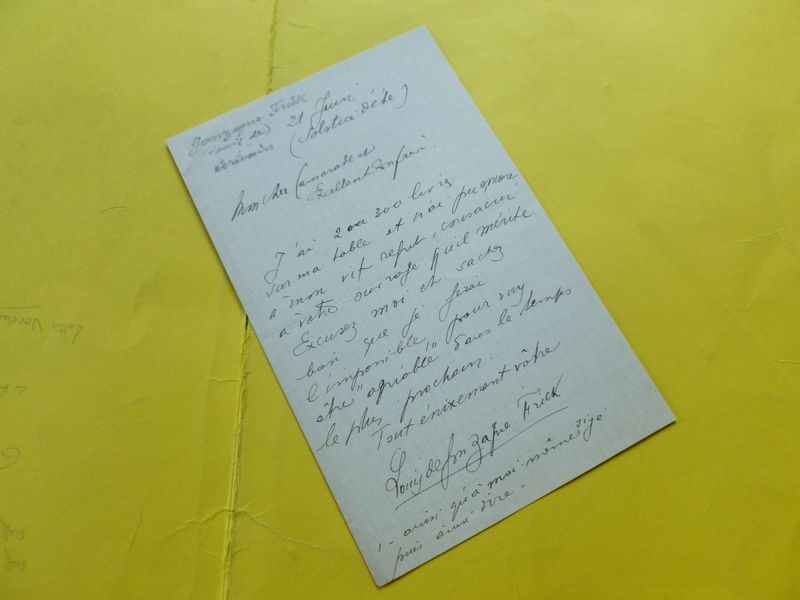 Gonzague Frick
(Louis de)
écrivain
21 Juin
(Solstice d'été)
Mon cher Camarade et
Excellent Confrère.
J'ai 2 ou 300 livres
sur ma table et n'ai pu encore
à mon vif regret, consacrer
à votre ouvrage qu'il mérite
Excusez moi et sachez
bien que je ferai
l'impossible pour vous
être "agréable" dans le temps
le plus prochain.
Tout énixement vôtre
Louis de Gonzague Frick
1 - ainsi qu'à moi-même si je
puis ainsi dire -